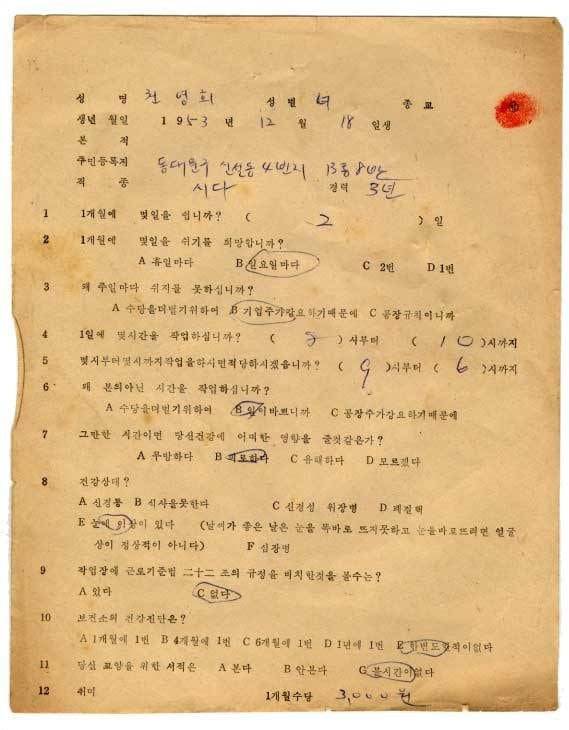 성 명 천 영 희 성 별 녀 종 교
생년 월일 1953 년 12 월 18 일생
본 적
주민등록지 동대문구 신설동 4번지 13통 8반
직 종 시다 경력 3년
1 1개월에 몇일을 쉽니까? ( 2 ) 일
2 1개월에 몇일을 쉬기를 희망합니까?
A 휴일마다 B 일요일마다 C 2번 D 1번
3 왜 주일마다 쉬지를 못하십니까?
A 수당을더벌기위하여 B 기업주가강요하기때문에 C 공장규칙이니까
4 1일에 몇시간을 작업하십니까? ( 8 )시부터 ( 10 )시까지
5 몇시부터몇시까지작업을하시면적당하시겠읍니까? ( 9 )시부터 ( 6 )시까지
6 왜 본의아닌 시간을 작업하십니까?
A 수당을더벌기위하여 B 일이바쁘니까 C 공장주가강요하기때문에
7 그만한 시간이면 당신건강에 어떠한 영향을 줄것같은가?
A 무방하다 B 피로하다 C 유해하다 D 모르겠다
8 건강상태?
A 신경통 B 식사를못한다 C 신경성 위장병 D 폐결핵
E 눈에 이상이 있다 (날씨가 좋은 날은 눈을 똑바로 뜨지못하고 눈을바로뜨려면 얼굴
상이 정상적이 아니다) F 심장병
9 작업장에 근로기준법 二十二 조의 규정을 비치한것을 볼수는?
A 있다 C 없다
10 보건소의 건강진단은?
A 1개월에 1번 B 4개월에 1번 C 6개월에 1번 D 1년에 1번 E 한번도한적이없다
11 당신 교양을 위한 서적은 A 본다 B 안본다 C 볼시간이없다
12 취미 1개월수당 3,000원